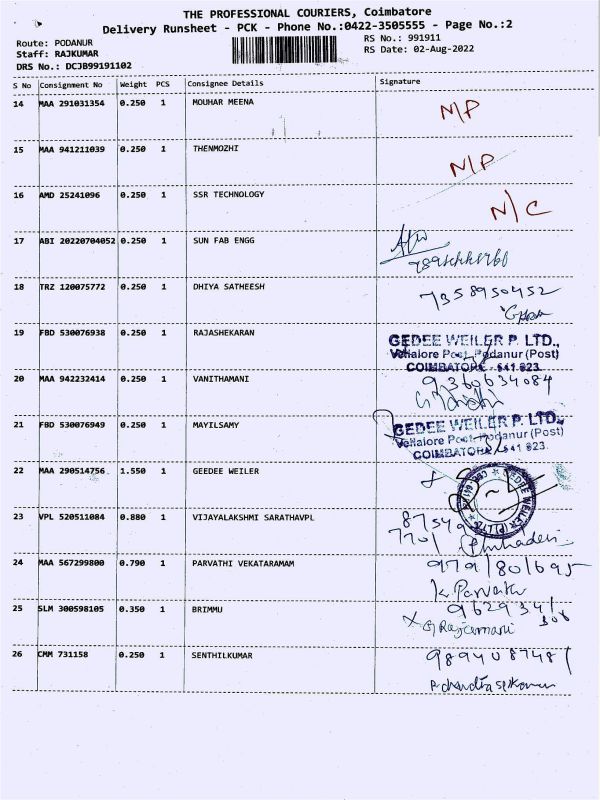 THE PROFESSIONAL COURIERS, Coimbatore
Delivery Runsheet - PCK - Phone No.:0422-3505555 - Page No.:2
Route: PODANUR
Staff: RAJKUMAR
DRS No.: DCJB99191102
RS No.: 991911
RS Date: 02-Aug-2022
S No Consignment No Weight PCS Consignee Details Signature
14 MAA 291031354 0.250 1 MOUHAR MEENA N/P
15 MAA 941211039 0.250 1 THENMOZHI N/P
16 AMD 25241096 0.250 1 SSR TECHNOLOGY N/C
17 ABI 20220704052 0.250 1 SUN FAB ENGG
18 TRZ 120075772 0.250 1 DHIYA SATHEESH 7358950452
19 FBD 530076938 0.250 1 RAJASHEKARAN GEDEE WEILER P. LTD.,
Vellalore Post, Podanur (Post)
COIMBATORE - 641 023.
20 MAA 942232414 0.250 1 VANITHAMANI 9360634084
21 FBD 530076949 0.250 1 MAYILSAMY GEDEE WEILER P. LTD.,
Vellalore Post, Podanur (Post)
COIMBATORE - 641 023.
22 MAA 290514756 1.550 1 GEEDEE WEILER
23 VPL 520511084 0.880 1 VIJAYALAKSHMI SARATHAVPL
24 MAA 567299800 0.790 1 PARVATHI VEKATARAMAM 979/80/695
K. Parvathi
25 SLM 300598105 0.350 1 BRIMMU
26 CMM 731158 0.250 1 SENTHILKUMAR